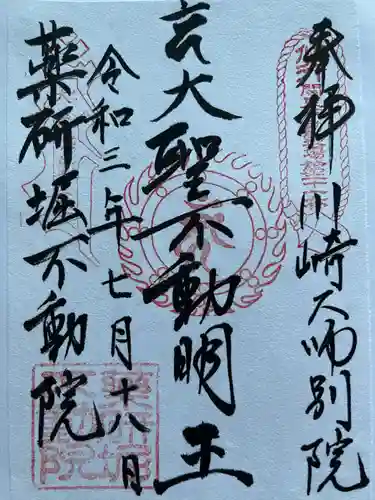 奉拝 川崎大師別院
大聖不動明王
令和三年七月十八日
薬研堀不動院